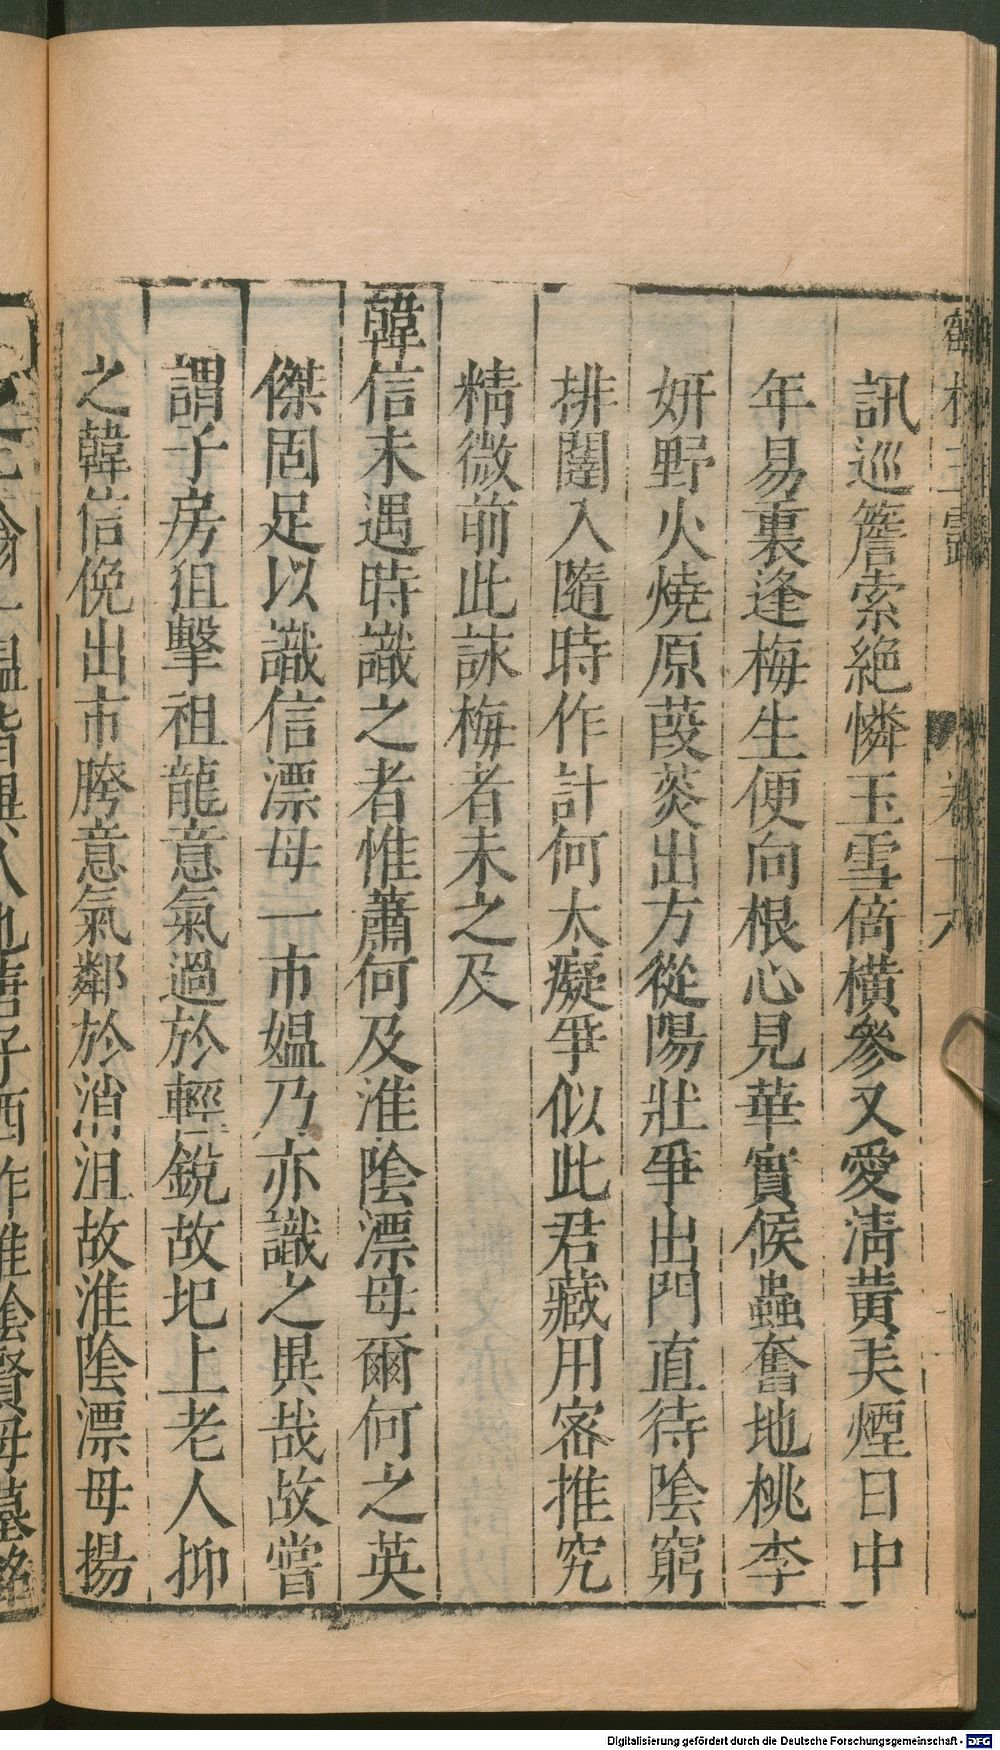 訊巡簷索絶憐玉雪倚橫參又愛清黃美煙日中
年易裏逢梅生便向根心見華實候蟲奮地桃李
妍野火燒原葭菼出方從陽壯爭出門直待陰窮
排闥入隨時作計何太癡爭似此君藏用密推究
精微前此詠梅者未之及
韓信未遇時識之者惟蕭何及淮陰漂母爾何之英
傑固足以識信漂母一市媼乃亦識之異哉故嘗
謂子房狙擊祖龍意氣過於輕銳故圯上老人抑
之韓信俛出市胯意氣鄰於消沮故淮陰漂母揚
Digitalisierung gefördert durch die Deutsche Forschungsgemeinschaft - DFG